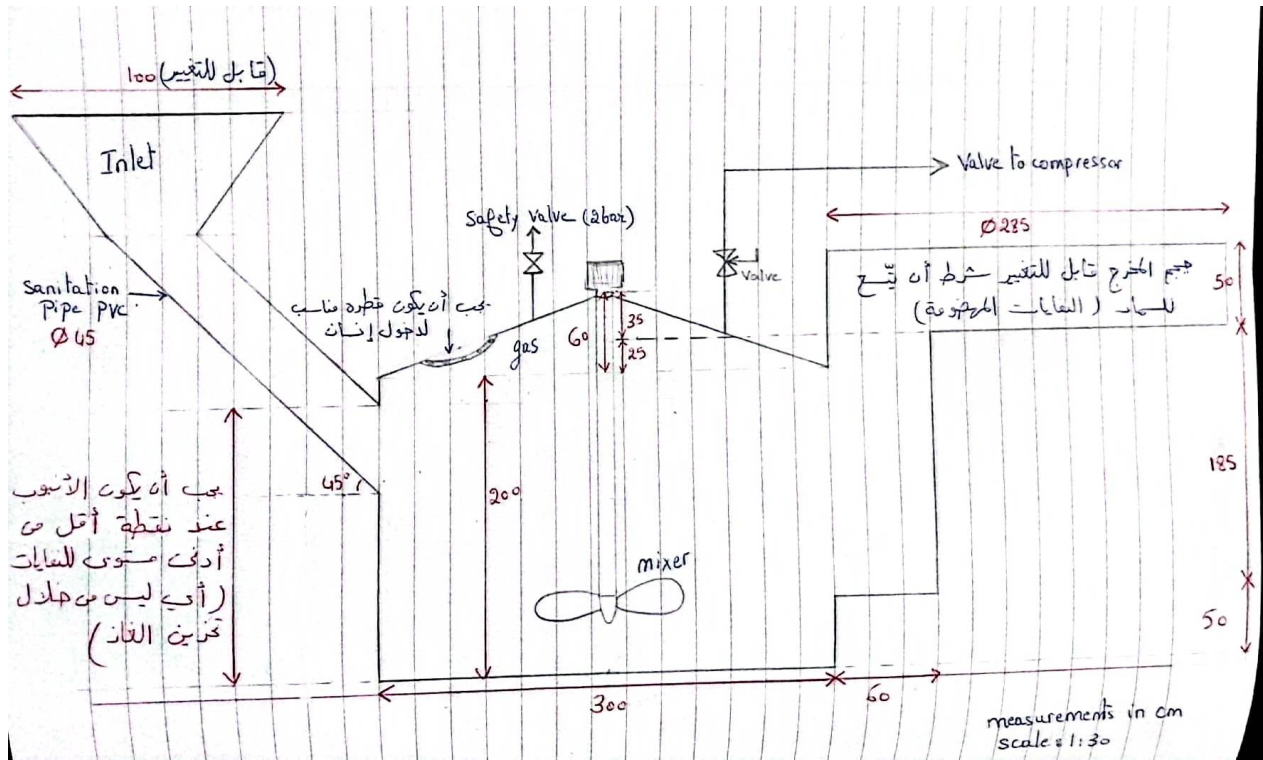 100 (قابل للتغيير)
Inlet
Valve to compressor
Safety valve (2bar)
Ø 235
Valve
حجم المخرج قابل للتغيير شرط أن يتّسع
للسماد (النفايات المهضومة)
50
sanitation
pipe PVC
Ø 45
يجب أن يكون قطره مناسب
لدخول إنسان
gas
60
35
25
45°
200
185
يجب أن يكون الأنبوب
عند نقطة أقل من
أدنى مستوى للنفايات
(أي ليس من خلال
تخزين الغاز)
mixer
50
300
60
measurements in cm
scale: 1:30